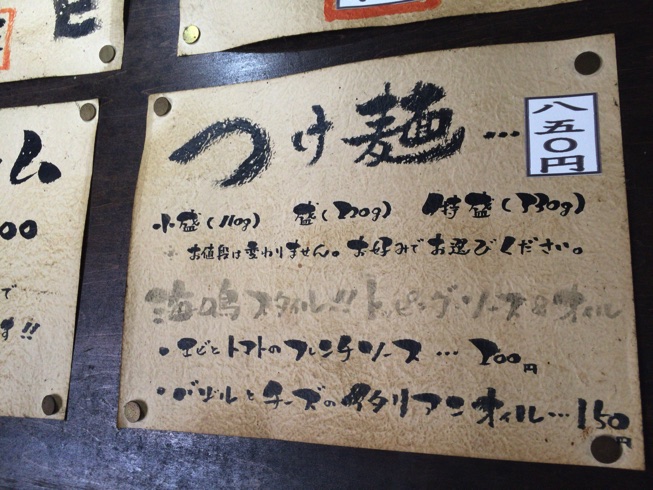 つけ麺… 八五〇円
小盛(110g) 盛(220g) 特盛(330g)
※お値段は変わりません。お好みでお選びください。
海鳴スタイル!!トッピングソース&オイル
・エビとトマトのフレンチソース… 200円
・バジルとチーズのイタリアンオイル…150円
ム
00
で
す!!